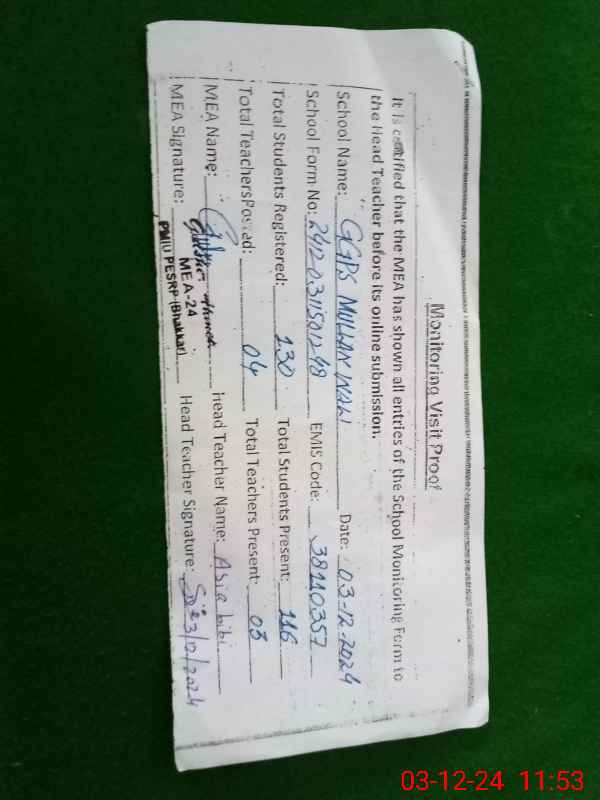 Monitoring Visit Proof
It is certified that the MEA has shown all entries of the School Monitoring Form to
the Head Teacher before its online submission.
School Name: GGPS MULWAN WALI Date: 03-12-2024
School Form No: 24120311501248 EMIS Code: 38110357
Total Students Registered: 130 Total Students Present: 116
Total Teachers Posted: 04 Total Teachers Present: 03
MEA Name: Head Teacher Name: Asia bibi
MEA Signature: Head Teacher Signature: 3/12/2024
MEA-24
PMIU PESRP (Bhakkar)
03-12-24 11:53